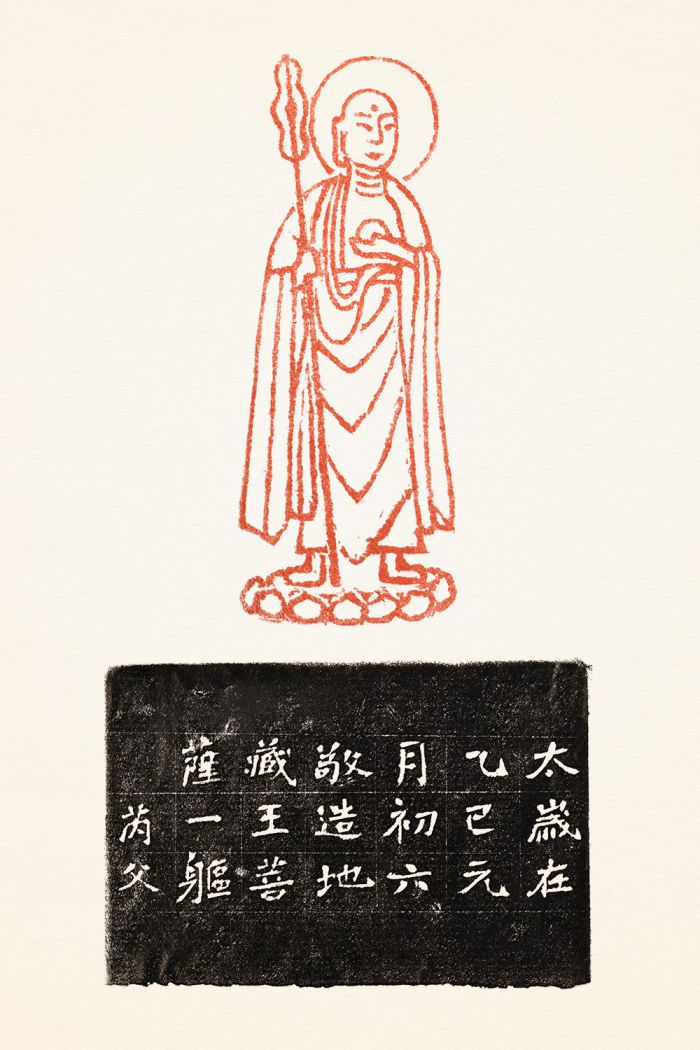 太歲在
乙巳元
月初六
敬造地
藏王菩
薩一軀
芮父